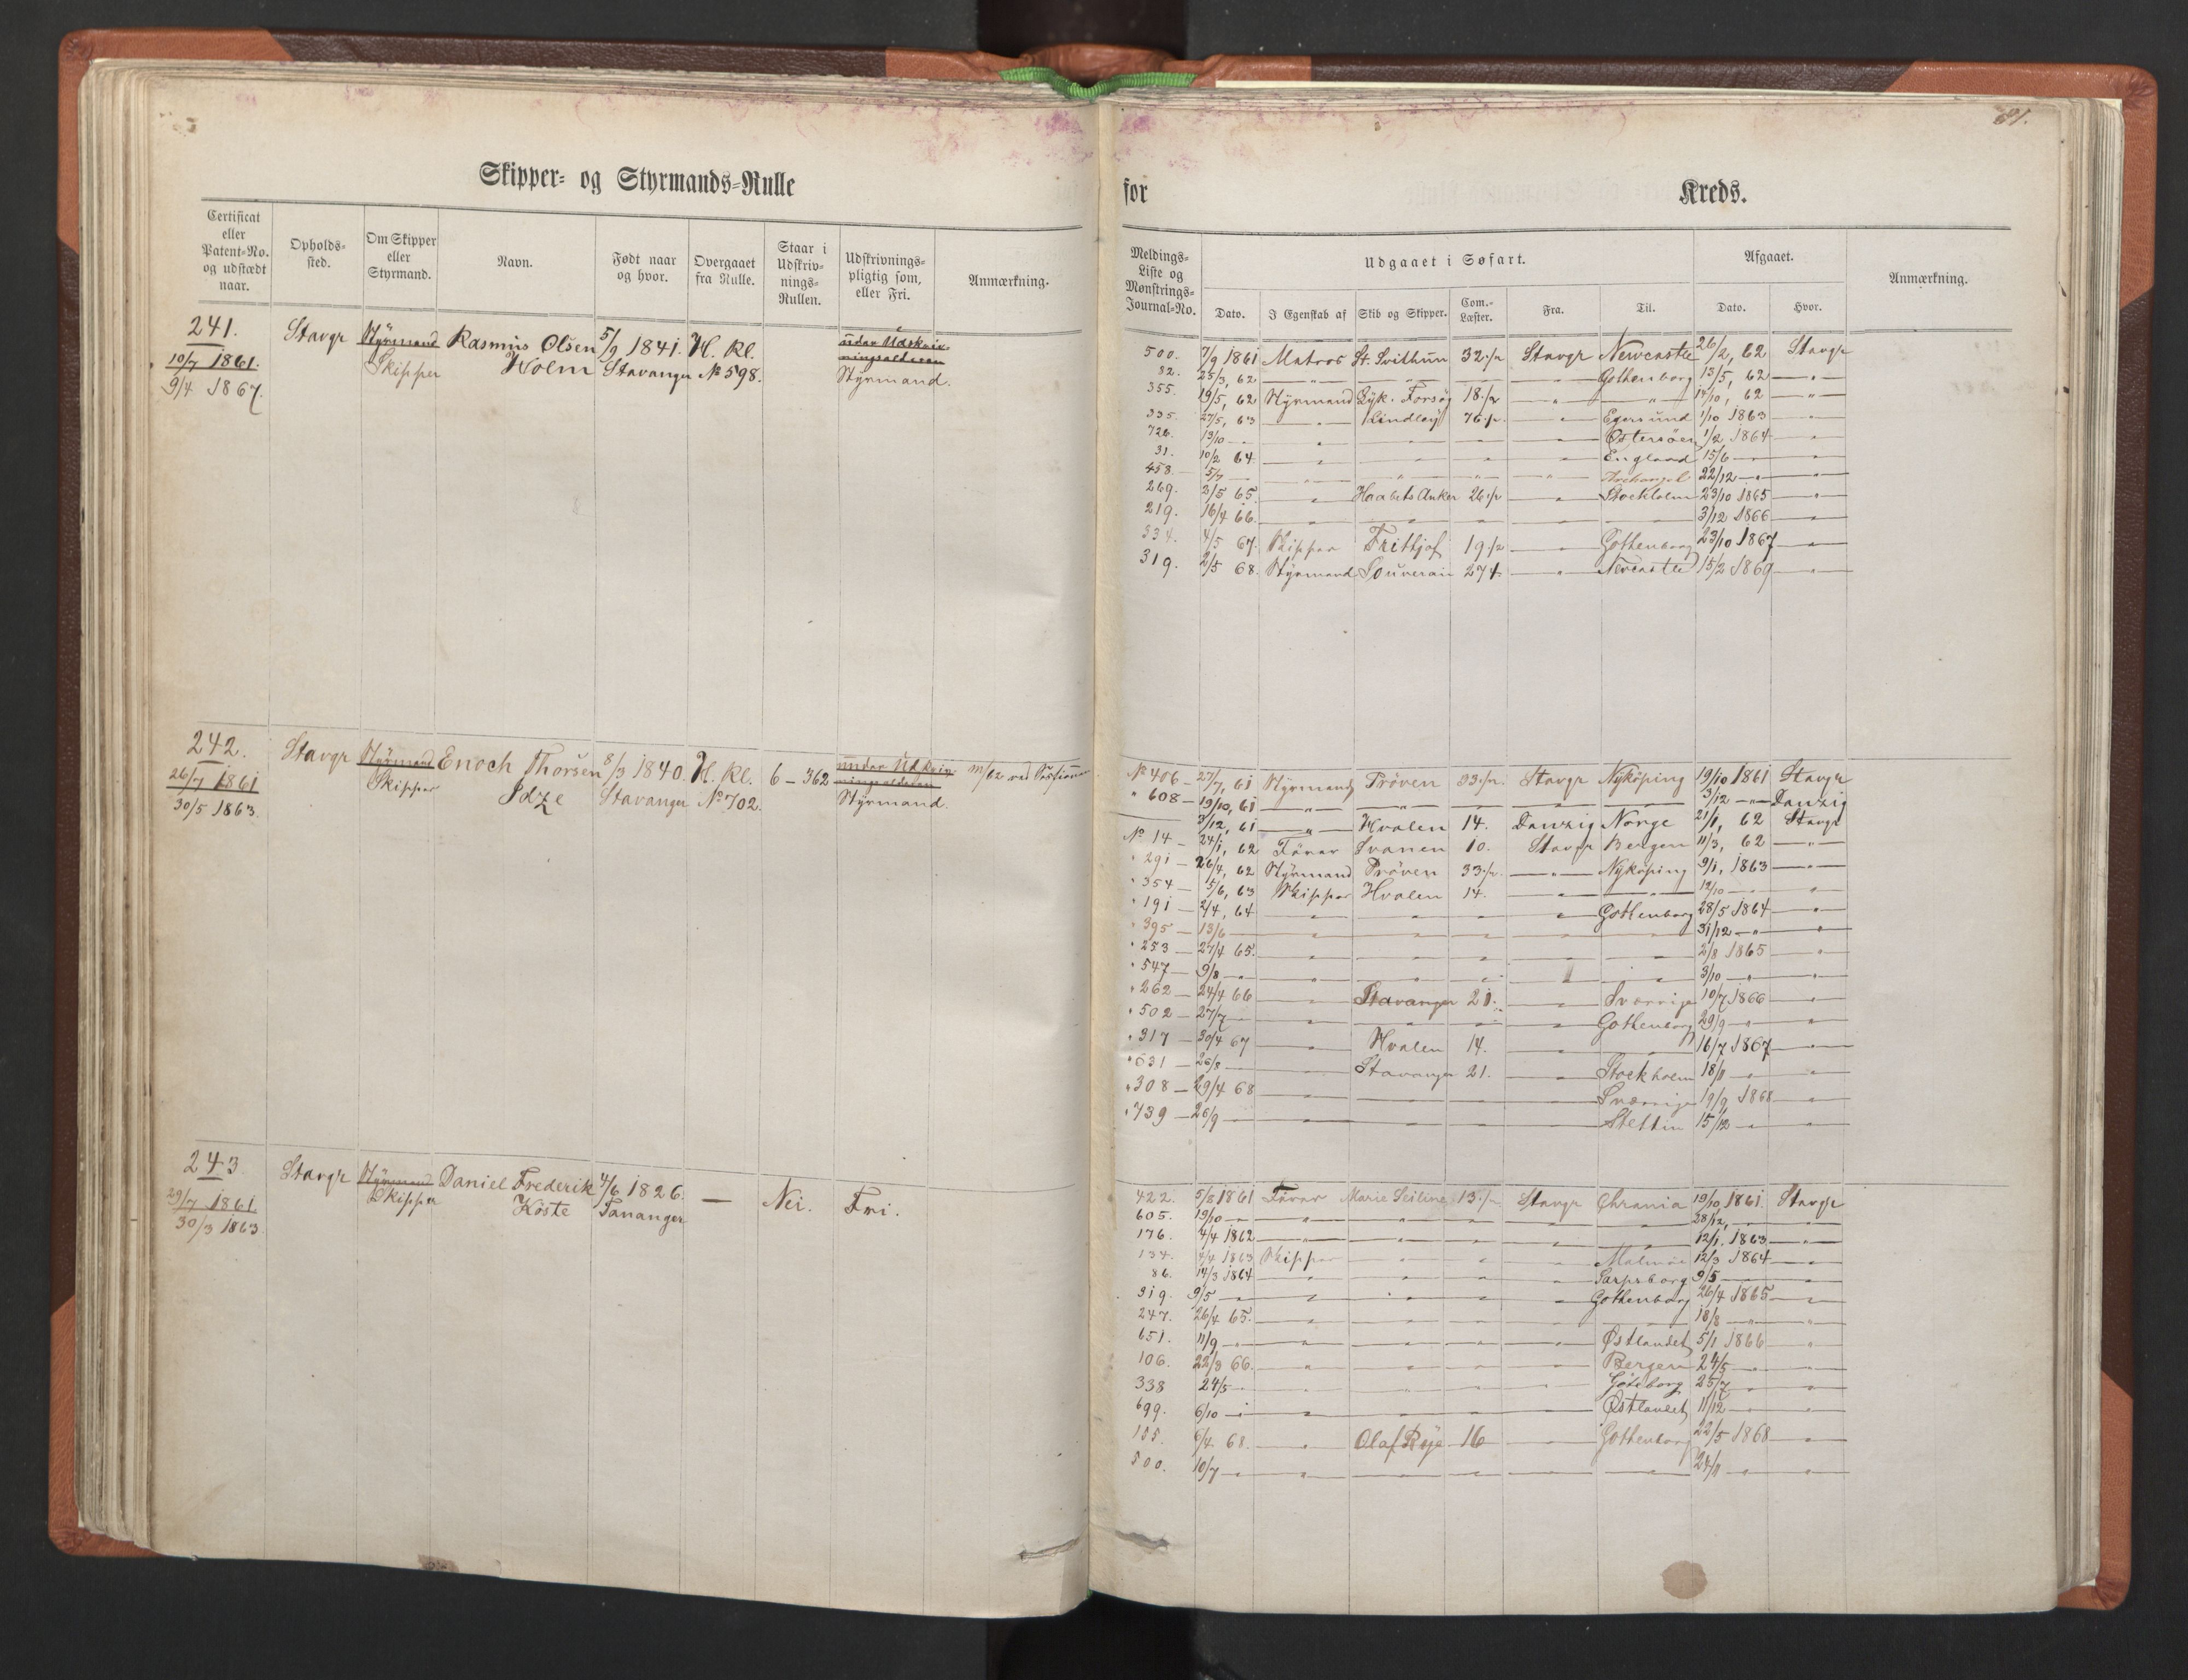 81.
Skipper- og Styrmands-Rulle
for Kreds.
Certificat eller Patent-No. og udstædt naar.
Opholds-sted.
Om Skipper eller Styrmand.
Navn.
Født naar og hvor.
Overgaaet fra Rulle.
Staar i Udskriv-nings-Rullen.
Udskrivnings-pligtig som, eller Fri.
Anmærkning.
Meldings-Liste og Mønstrings-Journal-No.
Udgaaet i Søfart.
Dato. I Egenskab af Skib og Skipper. Com.-Læster. Fra. Til.
Afgaaet.
Dato. Hvor.
Anmærkning.
241. Stavgr Styrmand Rasmus Olsen 5/9 1841. H. Kl. under Udskriv-
10/7 1861. Skipper Holm Stavanger No 598. ningsalderen
9/4 1867. Styrmand.
500. 7/9 1861 Matros St. Svithun 32 Stavgr Newcastle 26/2, 62 Stavgr
32. 25/3, 62 — " — — " — — — Gothenborg 15/5, 62 — " —
355. 19/5, 62 Styrmand Lyk. Forsøg 18 — " — — " — 14/10, 62 — " —
335. 27/5, 63 — " — Lindløy 76 — " — Egersund 1/10 1863 — " —
726. 13/10 — " — — — — Østersøen 1/2 1864 — " —
31. 10/2 64. — " — " " " England 15/6 — " — "
458. 5/7 — " " " " Archangel 22/12 — " — "
269. 3/5 65. — " Haabets Anker 26 — " — Stockholm 23/10 1865 — " —
219. 16/4 66. — " — " — " — — 3/12 1866 — " —
534. 4/5 67. Skipper Frithjof 19 — " — Gothenborg 23/10 1867 — " —
319. 2/5 68. Styrmand Souverain 274 — " — Newcastle 15/2 1869 — " —
242. Stavgr Styrmand Enoch Thorsen 8/3 1840. H. Kl. 6 — 362 under Udskriv-
26/7 1861 Skipper Idze Stavanger No 702. ningsalderen
30/5 1863. Styrmand.
No 406 — 27/7, 61 Styrmand Prøven 33 Stavgr Nykøping 19/10 1861 Stavgr
" 608 — 19/10, 61 — " — — " — — — — 3/12 — " — Danzig
3/12, 61 — " — Hvalen 14. Danzig Norge 21/1, 62 Stavgr
No 14 — 24/1, 62 Førar Svanen 10. Stavgr Bergen 11/3, 62 — " —
" 291 — 26/4, 62 Styrmand Prøven 33 — " — Nykøping 9/1, 1863 — " —
" 354 — 5/6, 63 Skipper Hvalen 14. — — " — 12/10 — " — "
" 191 — 2/4, 64 " " " " Gothenborg 28/5 1864 — " —
" 395 — 13/6 — " " " " " 31/12 — " — "
" 253 — 27/4 65. — " — " — " — " — 2/8 1865 — "
" 547 — 9/8 — " " " " " 3/10 — " — "
" 262 — 24/4 66 — " — Stavanger 21. — " — Sverrige 10/7 1866 — " —
" 502 — 27/7 — " — " — — Gothenborg 29/9 — " — "
" 317 — 30/4 67 — " — Hvalen 14. — " — " — 16/7 1867 — " —
" 631 — 26/8 — " — Stavanger 21. — " — Stockholm 18/11 — " — "
" 308 — 29/4 68 — " — — — — Sverrige 19/9 1868 — " —
" 739 — 26/9 — " — — — — Stettin 15/12 — " — "
243 Stavgr Styrmand Daniel Frederik 4/6 1826. — Nei. Fri.
29/7 1861. Skipper Køste Tananger
30/3 1863.
422. 5/8 1861 Førar Marie Seiline 13 Stavgr Chrania 19/10 1861. Stavgr
605. 19/10 — " — " — " — " — " — 28/12, — " —
176. 4/4 1862 — " — " — " — " — " — 12/1. 1863 — " —
134. 4/4 1863 Skipper " " " Malmøe 12/3 1864 — " —
86. 14/3 1864 — " — " — " — " Sarpsborg 9/5 — " — "
319. 9/5 — " — " — " — " Gothenborg 26/4 1865 — " —
247. 26/4 65. — " — " — " — " — 18/8 — " — "
651. 11/9 — " — " — " — " — Østlandet 5/1 1866 — "
106. 22/3 66. — " — " — " — " Bergen 24/5 — " — "
338 24/5 — " — " — " — " Gøteborg 25/7 — " — "
699. 6/10 — " — " — " — " Østlandet 11/12 — " — "
155. 6/4 68. — " Olaf Rye 16 — " — Gothenborg 22/5 1868 — " —
500. 10/7 — " — " — " — " — " — 24/11 — " — "